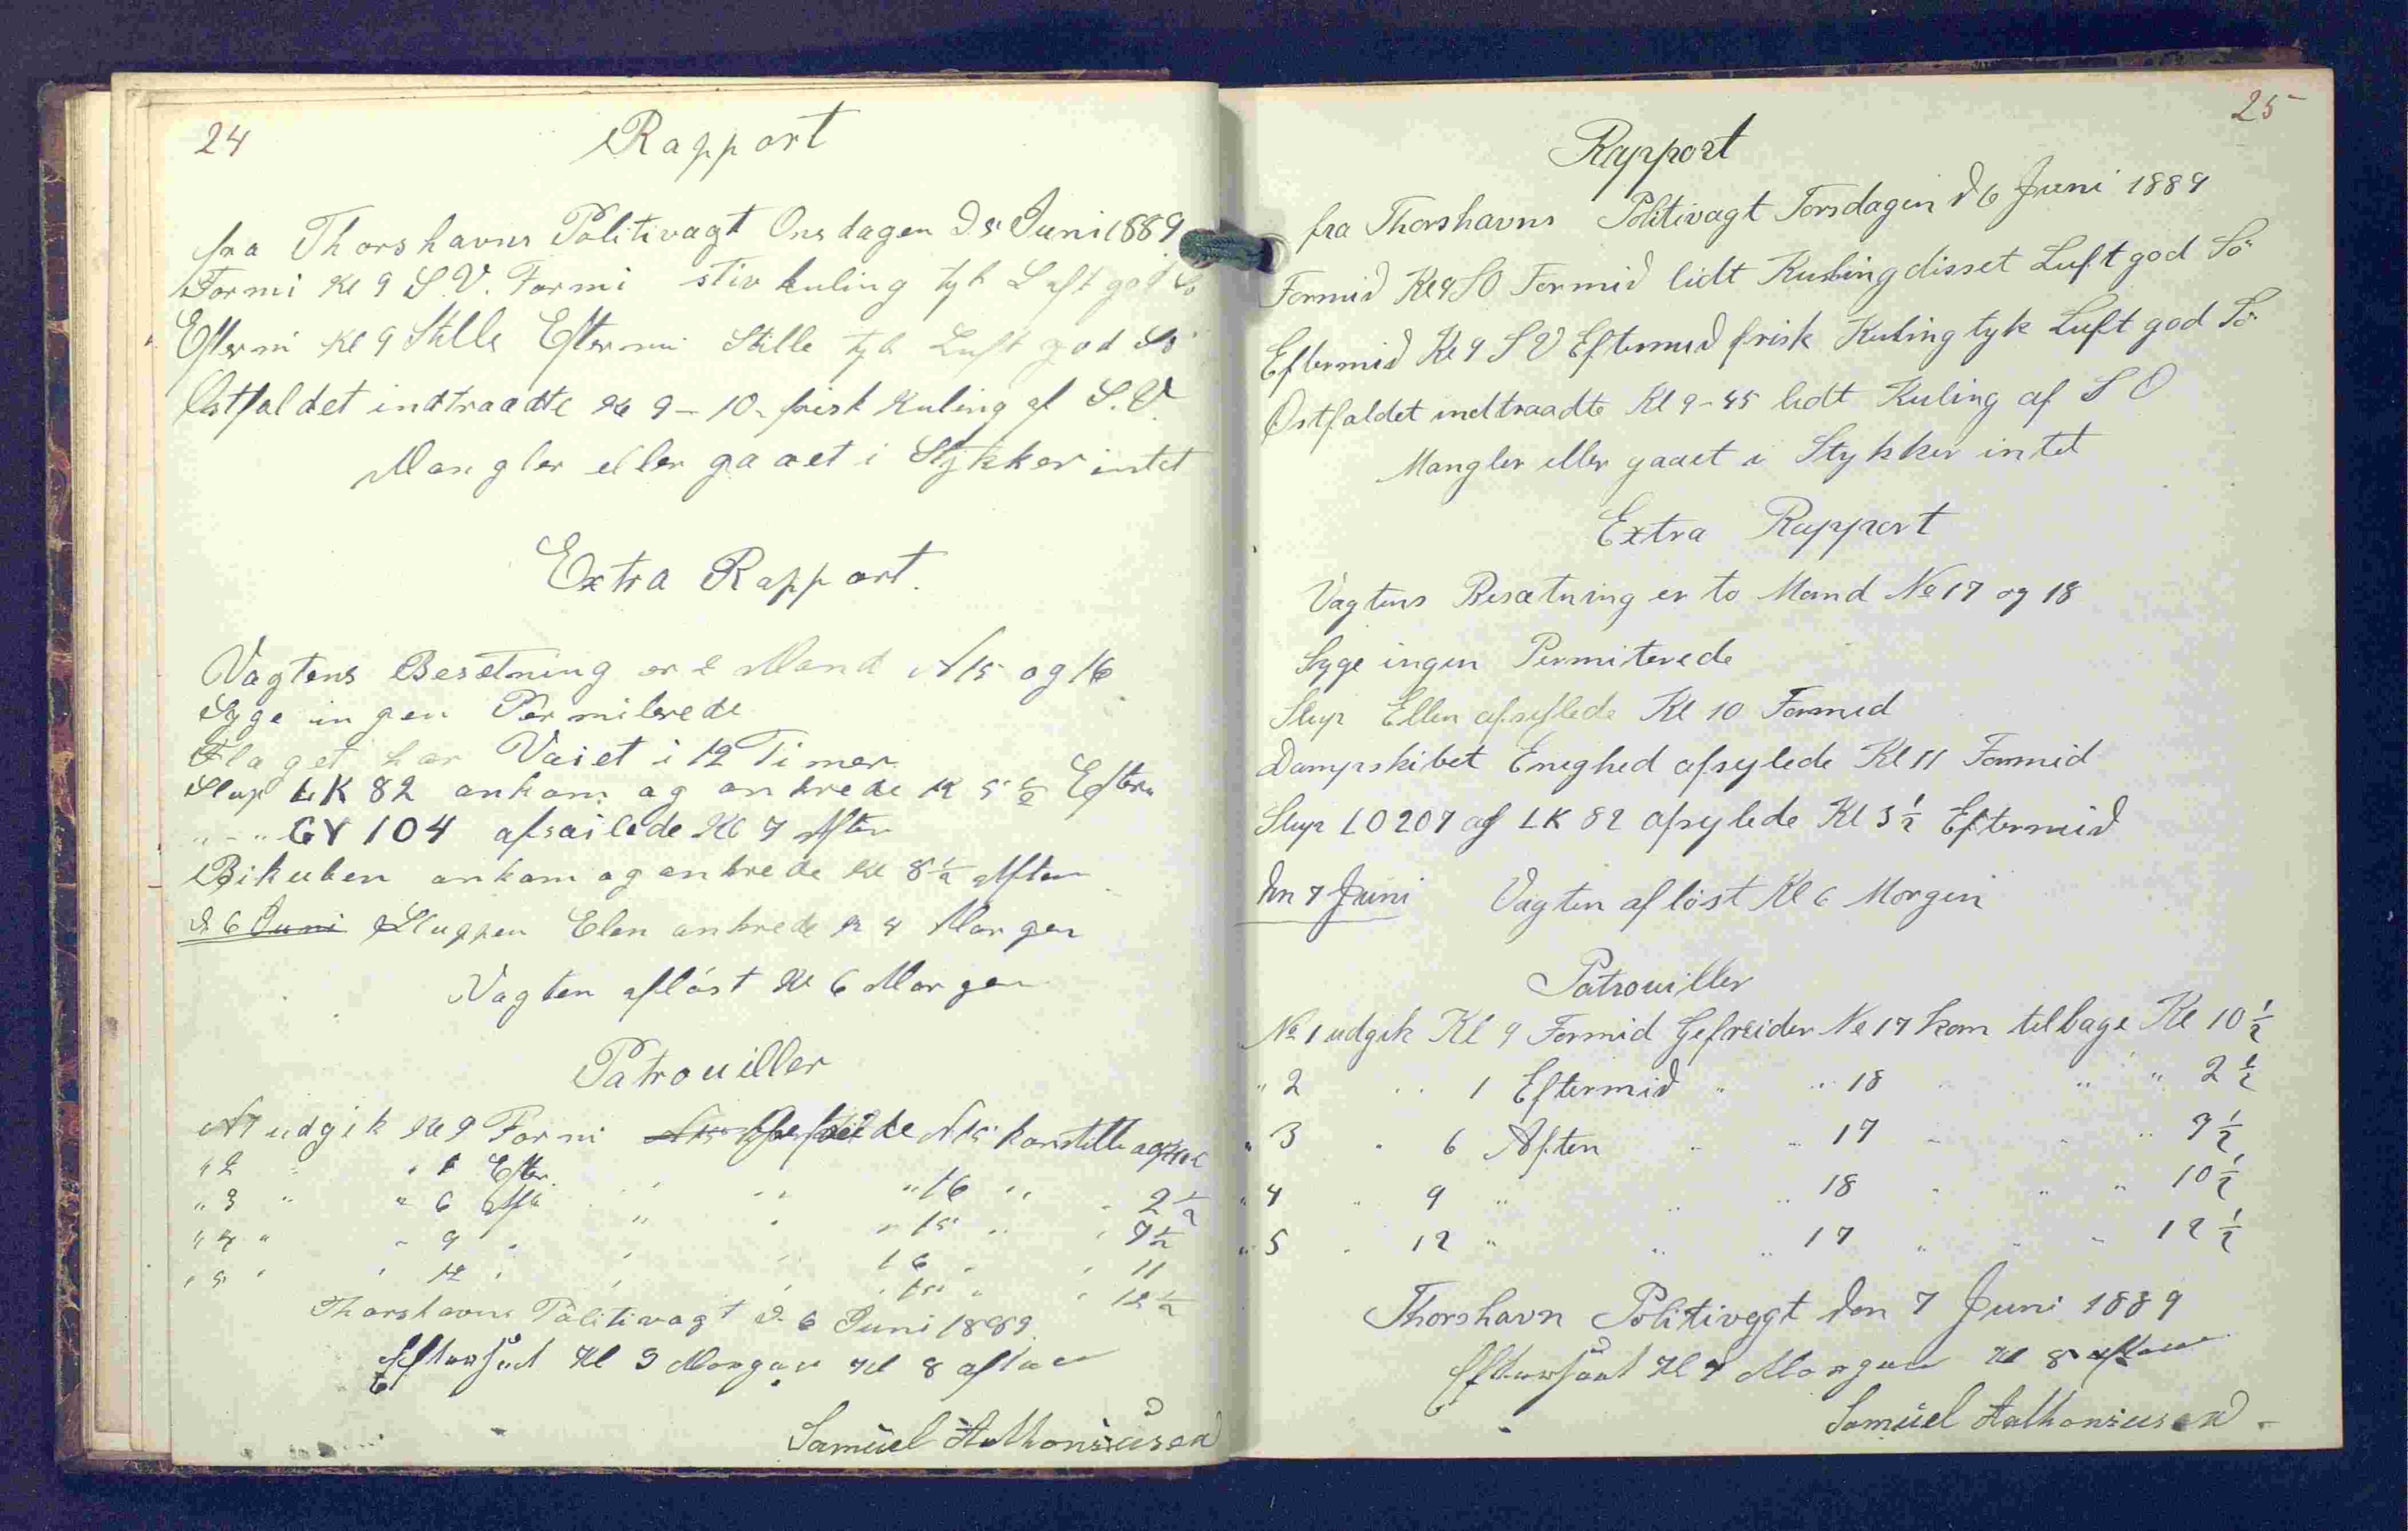 24
Rapport
fra Thorshavns Politivagt Onsdagen D. 5 Juni 1889
Formi Kl 9 S.V. Formi stiv kuling tyk Luft god Sö
Eftermi Kl 9 Stille Eftermi Stille tyk Luft god Sö
Östfaldet indtraadte Kl 9-10 frisk Kuling af S.V.
Mangler eller gaaet i Stykker intet
Extra Rapport.
Vagtens Besetning er 2 Mand N 15 og 16
Syge ingen Permiterede
Flaget har Vaiet i 12 Timer
Slup LK 82 ankom og ankrede Kl 5 1/2 Efterm
" - " GV 104 afsailede Kl 7 Aften
Bikuben ankom og ankrede Kl 8 1/2 Aften
D. 6 Juni Sluppen Elen ankrede Kl 4 Morgen
Vagten aflöst Kl 6 Morgen
Patrouiller
N 1 udgik Kl 9 Formi N 15 kom
" 2 " " 1 Efter " " " 16 " " 2 1/2
" 3 " " 6 Aft " " " 15 " " 7 1/2
" 4 " " 9 " " " 16 " " 11
" 5 " " 12 " " " 15 " " 12 1/2
Thorshavns Politivagt D. 6 Juni 1889
Efterseet Kl 9 Morgen Kl 8 aften
Samuel
25
Rapport
fra Thorshavns Politivagt Torsdagen D 6 Juni 1889
Formid Kl 9 SO Formid lidt Kuling disset Luft god Sö
Eftermid Kl 9 SV Eftermid frisk Kuling tyk Luft god Sö
Östfaldet indtraadte Kl 9-45 lidt Kuling af S O
Mangler eller gaaet i Stykker intet
Extra Rapport
Vagtens Besætning er to Mand No 17 og 18
Syge ingen Permiterede
Slup Ellen afseflede Kl 10 Formid
Dampskibet Enighed afsylede Kl 11 Formid
Slup LO 207 og LK 82 afsylede Kl 3 1/2 Eftermid
Den 7 Juni Vagten aflöst Kl 6 Morgen
Patrouiller
No 1 udgik Kl 9 Formid Gefreider No 17 kom tilbage Kl 10 1/2
" 2 " " 1 Eftermid " " 18 " " " 2 1/2
" 3 " 6 Aften " " 17 " " " 7 1/2
" 4 " 9 " " " 18 " " " 10 1/2
" 5 " 12 " " " 17 " " " 12 1/2
Thorshavn Politivagt den 7 Juni 1889
Efterseet Kl 7 Morgen Kl 8 aften
Samuel